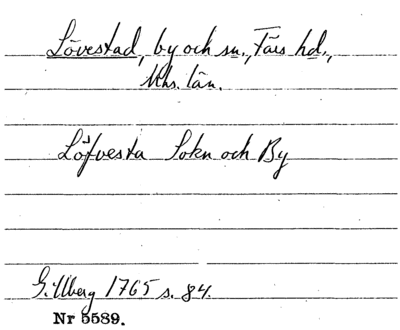 Lövestad, by och sn., Färs hd.,
Mhs. län.
Löfvesta Sokn och By
Gillberg 1765 s. 84.
Nr 5589.